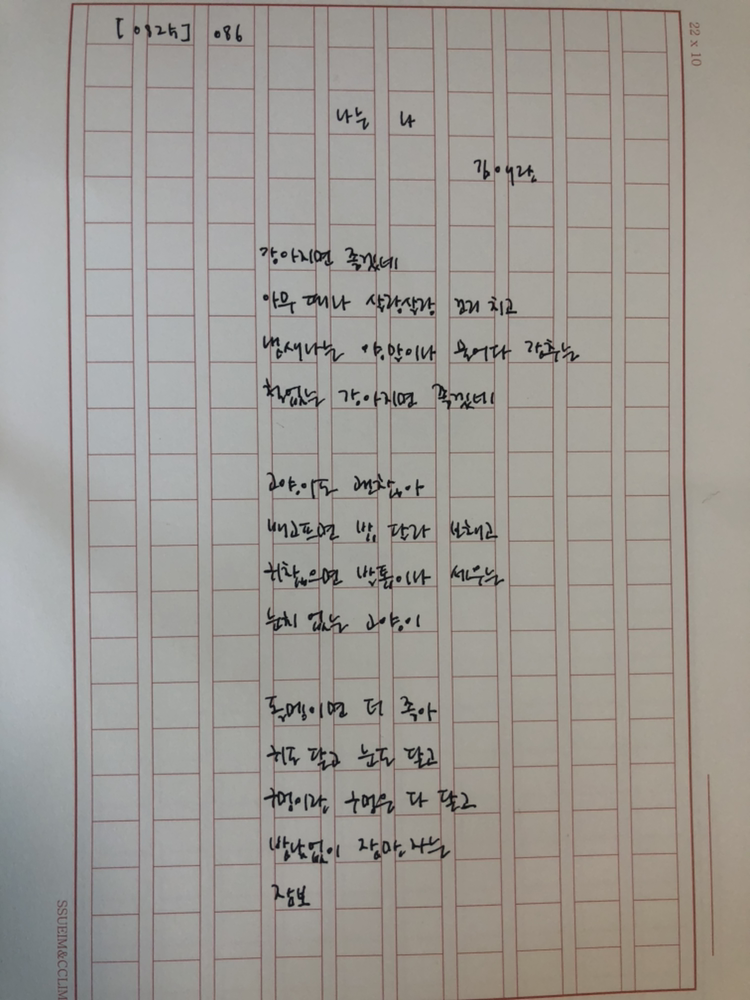 [0824] 086
22 x 10
나는 나
김애란
강아지면 좋겠네
아무 때나 살랑살랑 꼬리 치고
냄새나는 양말이나 물어다 감추는
철없는 강아지면 좋겠네
고양이도 괜찮아
배고프면 밥 달라 보채고
귀찮으면 발톱이나 세우는
눈치 없는 고양이
돌멩이면 더 좋아
귀도 닫고 눈도 닫고
구멍이란 구멍은 다 닫고
밤낮없이 잠만 자는
잠보
SSUEIM&CCLIM